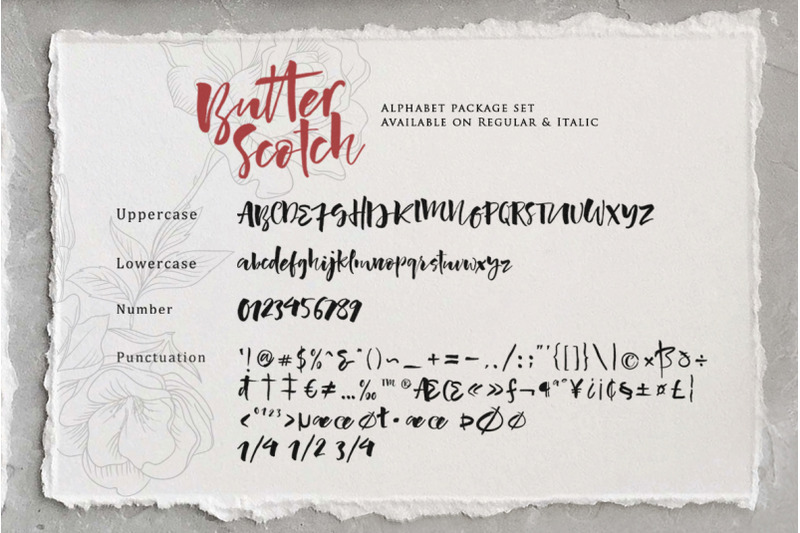 Butter
Scotch
Alphabet package set
Available on Regular & Italic
Uppercase ABCDEFGHIJKLMNOPQRSTUVWXYZ
Lowercase abcdefghijklmnopqrstuvwxyz
Number 0123456789
Punctuation '!@#$%^&*()~_+=-,./:;"'{[]}\|©×
÷
†‡€≠…‰™®ÆŒ«»ƒ¬¶ªº¥¿¡¢§±¤£¦
‹⁰¹²³›µæœØŧ·æœÞØø
1/4 1/2 3/4